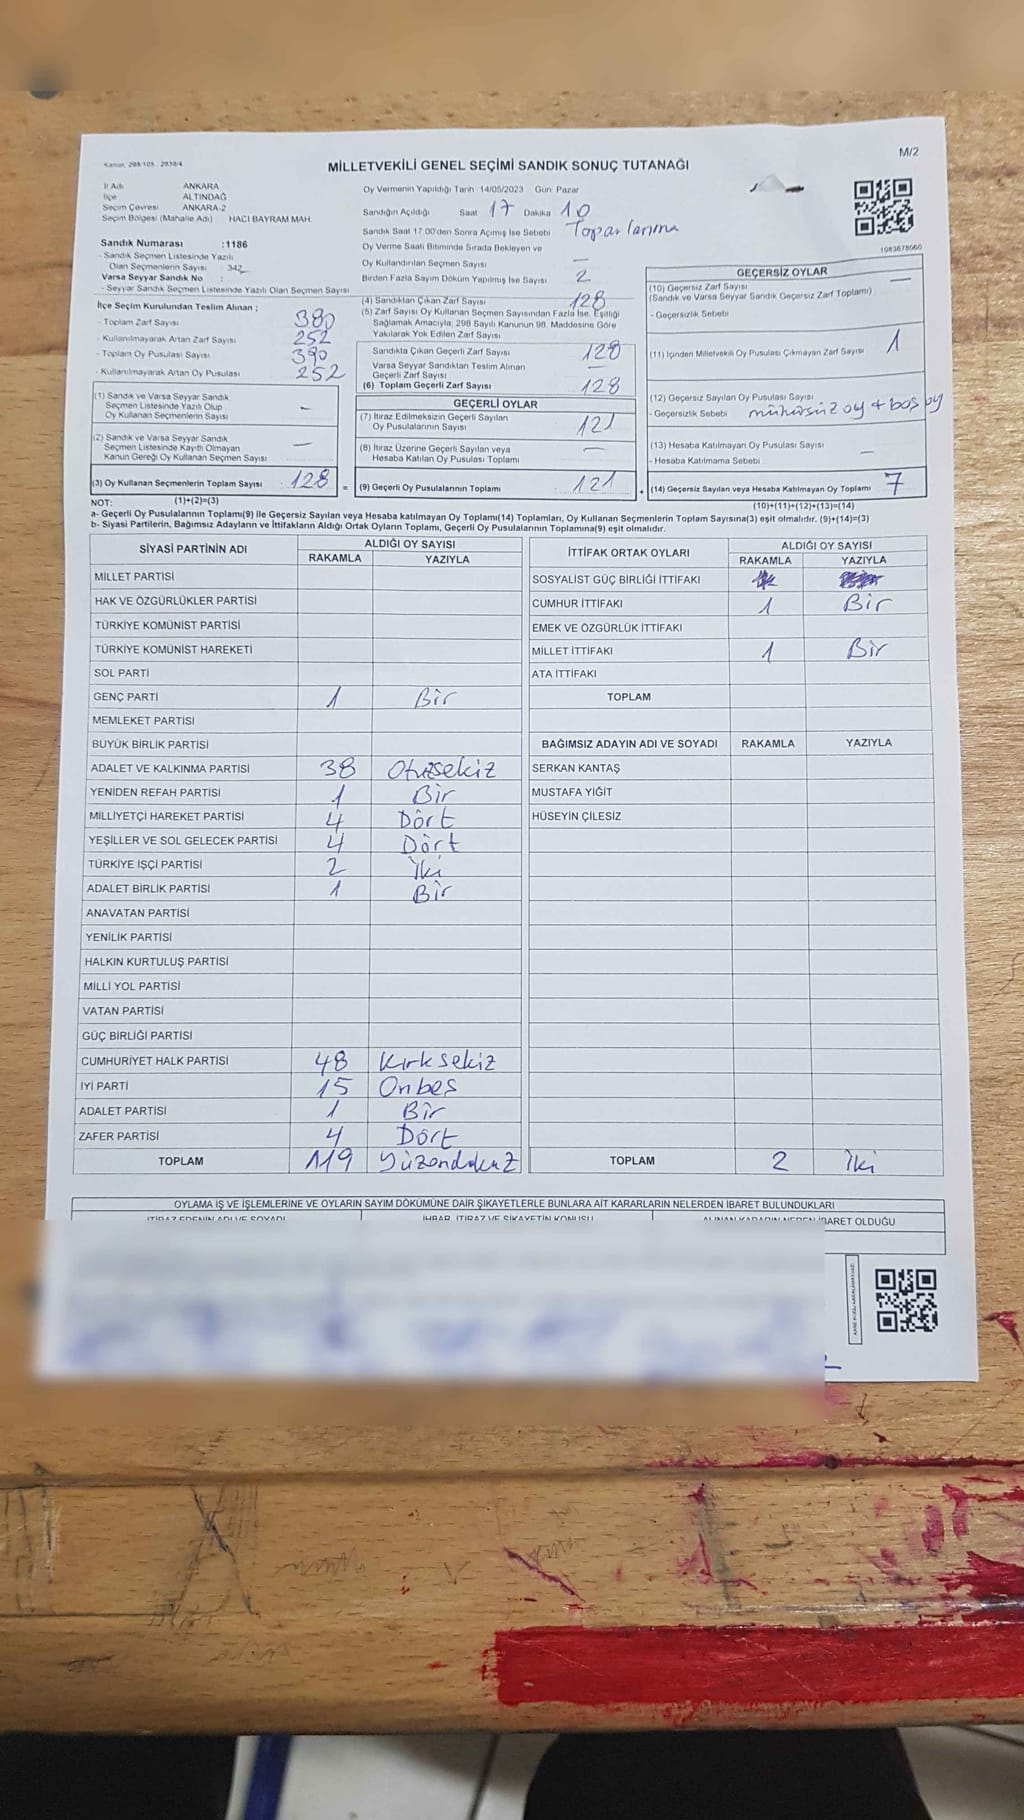 M/2
MİLLETVEKİLİ GENEL SEÇİMİ SANDIK SONUÇ TUTANAĞI
İl Adı ANKARA
İlçe ALTINDAĞ
Seçim Çevresi ANKARA-2
Seçim Bölgesi (Mahalle Adı) HACI BAYRAM MAH.
Sandık Numarası :1186
- Sandık Seçmen Listesinde Yazılı
Olan Seçmenlerin Sayısı 342
Varsa Seyyar Sandık No :
- Seyyar Sandık Seçmen Listesinde Yazılı Olan Seçmen Sayısı
Oy Vermenin Yapıldığı Tarih :14/05/2023 Gün: Pazar
Sandığın Açıldığı Saat 17 Dakika 10
Sandık Saat 17.00'den Sonra Açımış İse Sebebi Toparlanma
Oy Verme Saati Bitiminde Sırada Bekleyen ve
Oy Kullandırılan Seçmen Sayısı —
Birden Fazla Sayım Döküm Yapılmış İse Sayısı 2
1083678060
İlçe Seçim Kurulundan Teslim Alınan ;
- Toplam Zarf Sayısı 380
- Kullanılmayarak Artan Zarf Sayısı 252
- Toplam Oy Pusulası Sayısı 390
- Kullanılmayarak Artan Oy Pusulası 252
(1) Sandık ve Varsa Seyyar Sandık
Seçmen Listesinde Yazılı Olup
Oy Kullanan Seçmenlerin Sayısı —
(2) Sandık ve Varsa Seyyar Sandık
Seçmen Listesinde Kayıtlı Olmayan
Kanun Gereği Oy Kullanan Seçmen Sayısı —
(3) Oy Kullanan Seçmenlerin Toplam Sayısı : 128 =
(4) Sandıktan Çıkan Zarf Sayısı 128
(5) Zarf Sayısı Oy Kullanan Seçmen Sayısından Fazla İse, Eşitliği
Sağlamak Amacıyla; 298 Sayılı Kanunun 98. Maddesine Göre
Yakılarak Yok Edilen Zarf Sayısı
Sandıkta Çıkan Geçerli Zarf Sayısı 128
Varsa Seyyar Sandıktan Teslim Alınan
Geçerli Zarf Sayısı —
(6) Toplam Geçerli Zarf Sayısı 128
GEÇERLİ OYLAR
(7) İtiraz Edilmeksizin Geçerli Sayılan
Oy Pusulalarının Sayısı 121
(8) İtiraz Üzerine Geçerli Sayılan veya
Hesaba Katılan Oy Pusulası Toplamı —
(9) Geçerli Oy Pusulalarının Toplamı : 121 +
GEÇERSİZ OYLAR
(10) Geçersiz Zarf Sayısı —
(Sandık ve Varsa Seyyar Sandık Geçersiz Zarf Toplamı)
- Geçersizlik Sebebi
(11) İçinden Milletvekili Oy Pusulası Çıkmayan Zarf Sayısı 1
(12) Geçersiz Sayılan Oy Pusulası Sayısı
- Geçersizlik Sebebi mühürsüz oy + boş oy
(13) Hesaba Katılmayan Oy Pusulası Sayısı —
- Hesaba Katılmama Sebebi
(14) Geçersiz Sayılan veya Hesaba Katılmayan Oy Toplamı 7
NOT: (1)+(2)=(3) (10)+(11)+(12)+(13)=(14)
a- Geçerli Oy Pusulalarının Toplamı(9) ile Geçersiz Sayılan veya Hesaba katılmayan Oy Toplamı(14) Toplamları, Oy Kullanan Seçmenlerin Toplam Sayısına(3) eşit olmalıdır. (9)+(14)=(3)
b- Siyasi Partilerin, Bağımsız Adayların ve İttifakların Aldığı Ortak Oyların Toplamı, Geçerli Oy Pusulalarının Toplamına(9) eşit olmalıdır.
SİYASİ PARTİNİN ADI ALDIĞI OY SAYISI
RAKAMLA YAZIYLA
MİLLET PARTİSİ
HAK VE ÖZGÜRLÜKLER PARTİSİ
TÜRKİYE KOMÜNİST PARTİSİ
TÜRKİYE KOMÜNİST HAREKETİ
SOL PARTİ
GENÇ PARTİ 1 Bir
MEMLEKET PARTİSİ
BÜYÜK BİRLİK PARTİSİ
ADALET VE KALKINMA PARTİSİ 38 Otuzsekiz
YENİDEN REFAH PARTİSİ 1 Bir
MİLLİYETÇİ HAREKET PARTİSİ 4 Dört
YEŞİLLER VE SOL GELECEK PARTİSİ 4 Dört
TÜRKİYE İŞÇİ PARTİSİ 2 İki
ADALET BİRLİK PARTİSİ 1 Bir
ANAVATAN PARTİSİ
YENİLİK PARTİSİ
HALKIN KURTULUŞ PARTİSİ
MİLLİ YOL PARTİSİ
VATAN PARTİSİ
GÜÇ BİRLİĞİ PARTİSİ
CUMHURİYET HALK PARTİSİ 48 Kırksekiz
İYİ PARTİ 15 Onbeş
ADALET PARTİSİ 1 Bir
ZAFER PARTİSİ 4 Dört
TOPLAM 119 Yüzondokuz
İTTİFAK ORTAK OYLARI ALDIĞI OY SAYISI
RAKAMLA YAZIYLA
SOSYALİST GÜÇ BİRLİĞİ İTTİFAKI
CUMHUR İTTİFAKI 1 Bir
EMEK VE ÖZGÜRLÜK İTTİFAKI
MİLLET İTTİFAKI 1 Bir
ATA İTTİFAKI
TOPLAM
BAĞIMSIZ ADAYIN ADI VE SOYADI RAKAMLA YAZIYLA
SERKAN KANTAŞ
MUSTAFA YİĞİT
HÜSEYİN ÇİLESİZ
TOPLAM 2 İki
OYLAMA İŞ VE İŞLEMLERİNE VE OYLARIN SAYIM DÖKÜMÜNE DAİR ŞİKAYETLERLE BUNLARA AİT KARARLARIN NELERDEN İBARET BULUNDUKLARI
İTİRAZ EDENİN ADI VE SOYADI İHBAR, İTİRAZ VE ŞİKAYETİN KONUSU ALINAN KARARIN NEDEN İBARET OLDUĞU